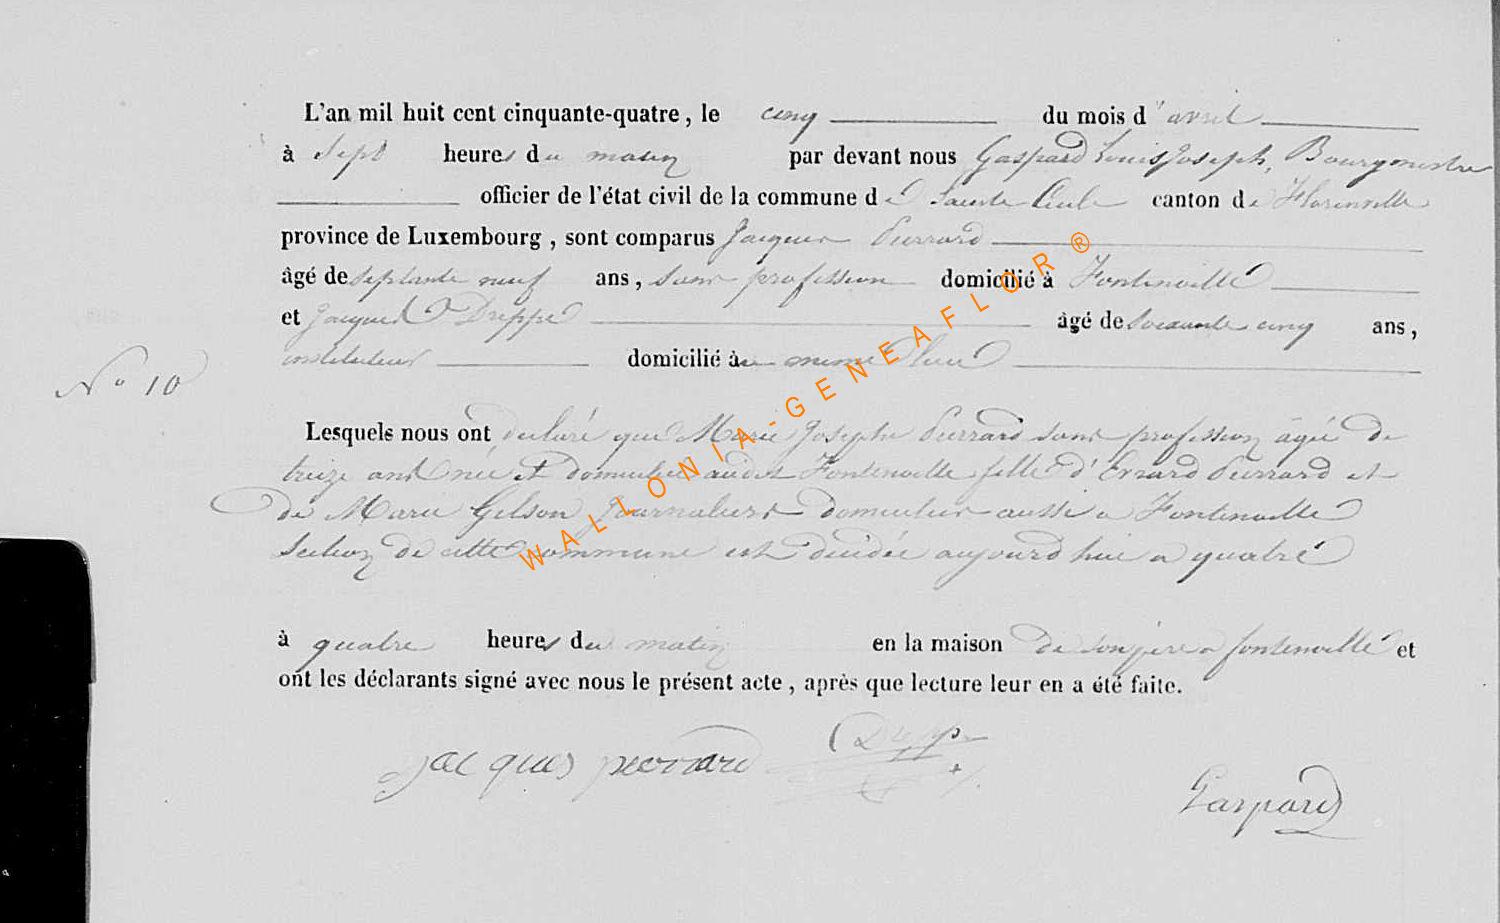 L'an mil huit cent cinquante-quatre, le cinq du mois d'avril
à Sept heures du matin par devant nous Gaspard Louis Joseph, Bourgmestre
officier de l'état civil de la commune de Sainte Cécile canton de Florenville
province de Luxembourg, sont comparus Jacques Pierrard
âgé de septante neuf ans, sans profession domicilié à Fontenoille
et Jacques Dreppe âgé de soixante cinq ans,
N° 10
instituteur domicilié au même lieu
Lesquels nous ont déclaré que Marie Josephe Pierrard sans profession âgée de
treize ans née et domiciliée audit Fontenoille fille d'Evrard Pierrard et
de Marie Gilson journaliers domiciliés aussi a Fontenoille
Section de cette commune est décédée aujourd'hui a quatre
à quatre heures du matin en la maison de son père a fontenoille et
ont les déclarants signé avec nous le présent acte, après que lecture leur en a été faite.
jacques pierrard Dreppe
Gaspard
WALLONIA-GENEAFLOR®